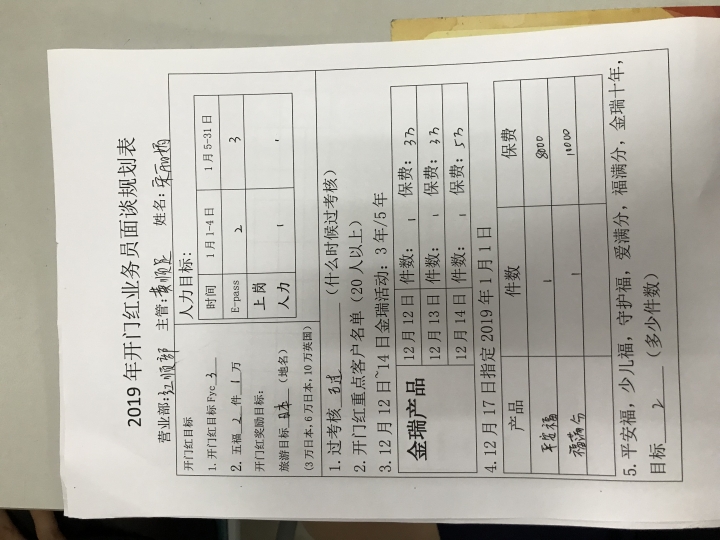 2019年开门红业务员面谈规划表
营业部:红顺部 主管:黄顺足 姓名:宋丽娟
开门红目标
1.开门红目标Fyc 3
2.五福 2 件 1 万
开门红奖励目标:
旅游目标 日本 (地名)
(3万日本,6万日本,10万英国)
人力目标:
时间 1月1-4日 1月5-31日
E-pass 2 3
上岗
人力 1 1
1.过考核 已过 (什么时候过考核)
2.开门红重点客户名单(20人以上)
3.12月12日~14日金瑞活动:3年/5年
金瑞产品
12月12日 件数: 1 保费: 3万
12月13日 件数: 1 保费: 3万
12月14日 件数: 1 保费: 5万
4.12月17日指定2019年1月1日
产品 件数 保费
平安福 1 8000
福满分 1 10000
5.平安福,少儿福,守护福,爱满分,福满分,金瑞十年,
目标 2 (多少件数)